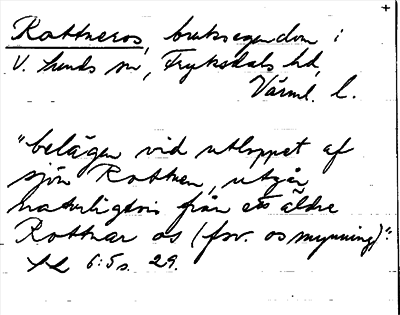 Rottneros, bruksegendom i
V. Sunds sn, Fryksdals hd,
Värml. l.
"belägen vid utloppet af
sjön Rottnen, utgår
naturligtvis från ett äldre
Rottnar os (fsv. os mynning)".
6:5 s. 29.